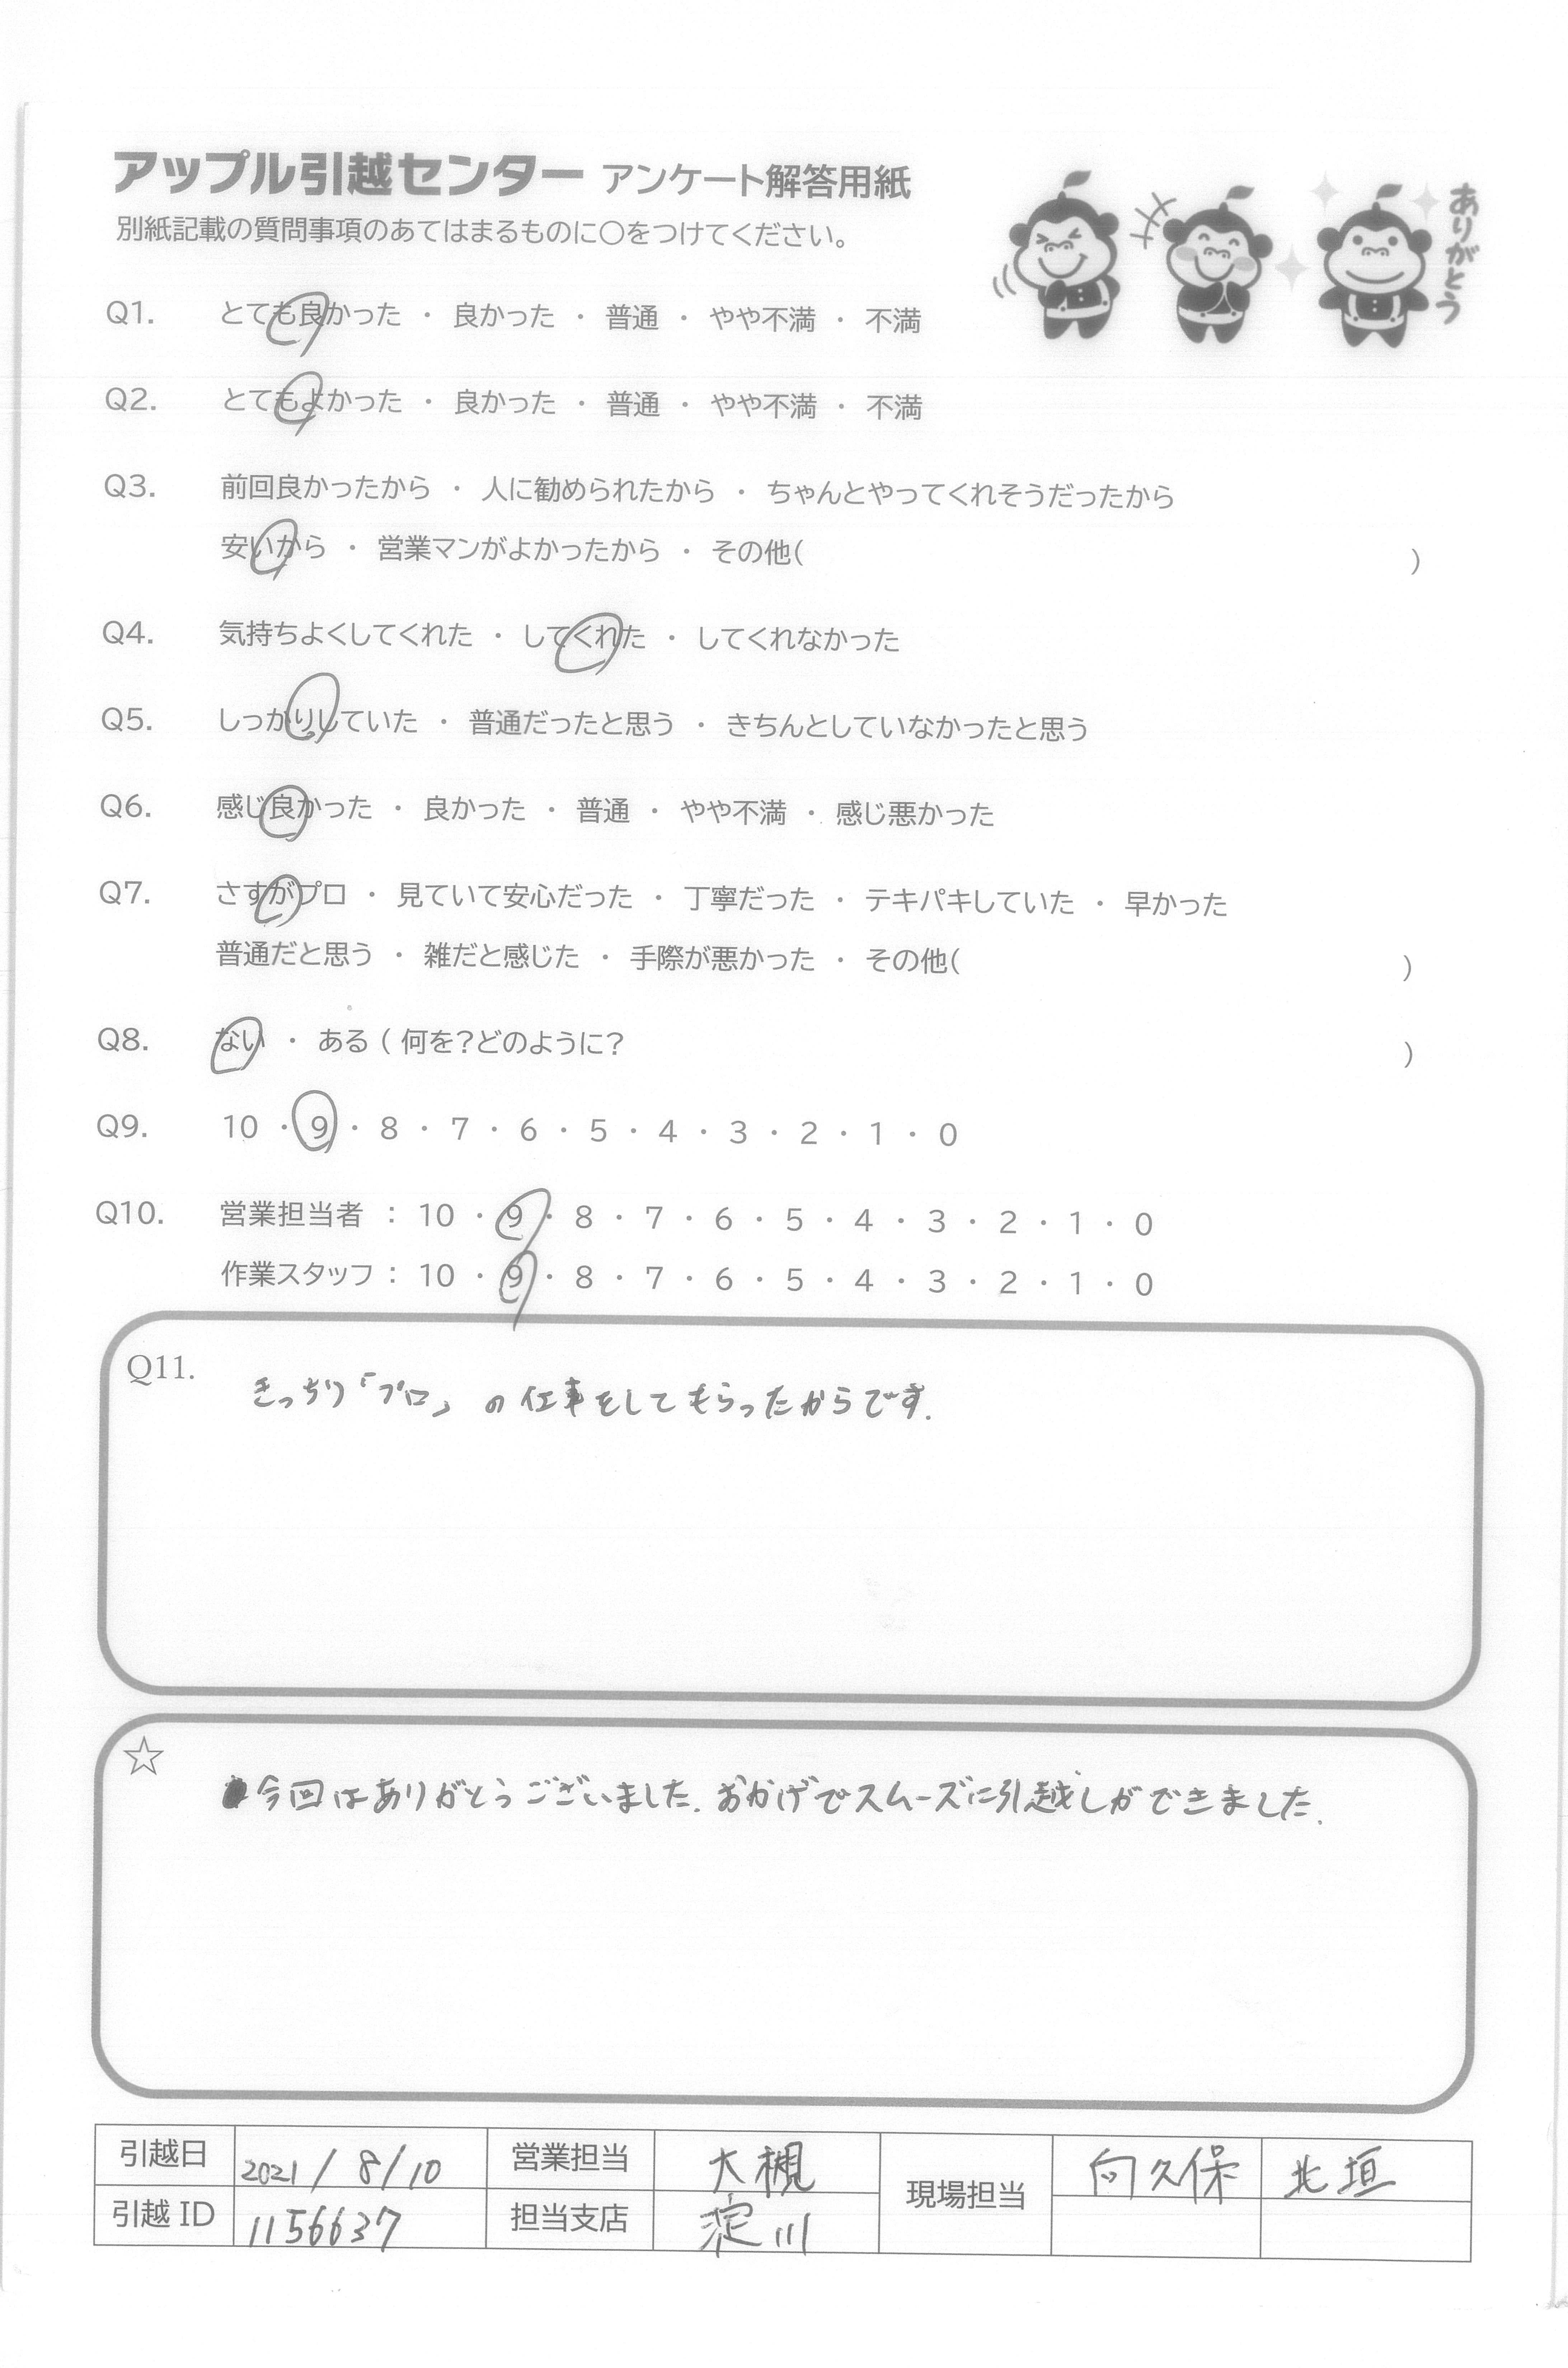 アップル引越センター アンケート解答用紙
別紙記載の質問事項のあてはまるものに〇をつけてください。
ありがとう
Q1. とても良かった ・ 良かった ・ 普通 ・ やや不満 ・ 不満
Q2. とてもよかった ・ 良かった ・ 普通 ・ やや不満 ・ 不満
Q3. 前回良かったから ・ 人に勧められたから ・ ちゃんとやってくれそうだったから
安いから ・ 営業マンがよかったから ・ その他( )
Q4. 気持ちよくしてくれた ・ してくれた ・ してくれなかった
Q5. しっかりしていた ・ 普通だったと思う ・ きちんとしていなかったと思う
Q6. 感じ良かった ・ 良かった ・ 普通 ・ やや不満 ・ 感じ悪かった
Q7. さすがプロ ・ 見ていて安心だった ・ 丁寧だった ・ テキパキしていた ・ 早かった
普通だと思う ・ 雑だと感じた ・ 手際が悪かった ・ その他( )
Q8. ない ・ ある ( 何を?どのように? )
Q9. 10 ・ 9 ・ 8 ・ 7 ・ 6 ・ 5 ・ 4 ・ 3 ・ 2 ・ 1 ・ 0
Q10. 営業担当者 : 10 ・ 9 ・ 8 ・ 7 ・ 6 ・ 5 ・ 4 ・ 3 ・ 2 ・ 1 ・ 0
作業スタッフ : 10 ・ 9 ・ 8 ・ 7 ・ 6 ・ 5 ・ 4 ・ 3 ・ 2 ・ 1 ・ 0
Q11. きっちり「プロ」の仕事をしてもらったからです.
☆ 今回はありがとうございました. おかげでスムーズに引越しができました.
引越日 2021/8/10 営業担当 大槻 現場担当 向久保 北垣
引越ID 1156637 担当支店 淀川